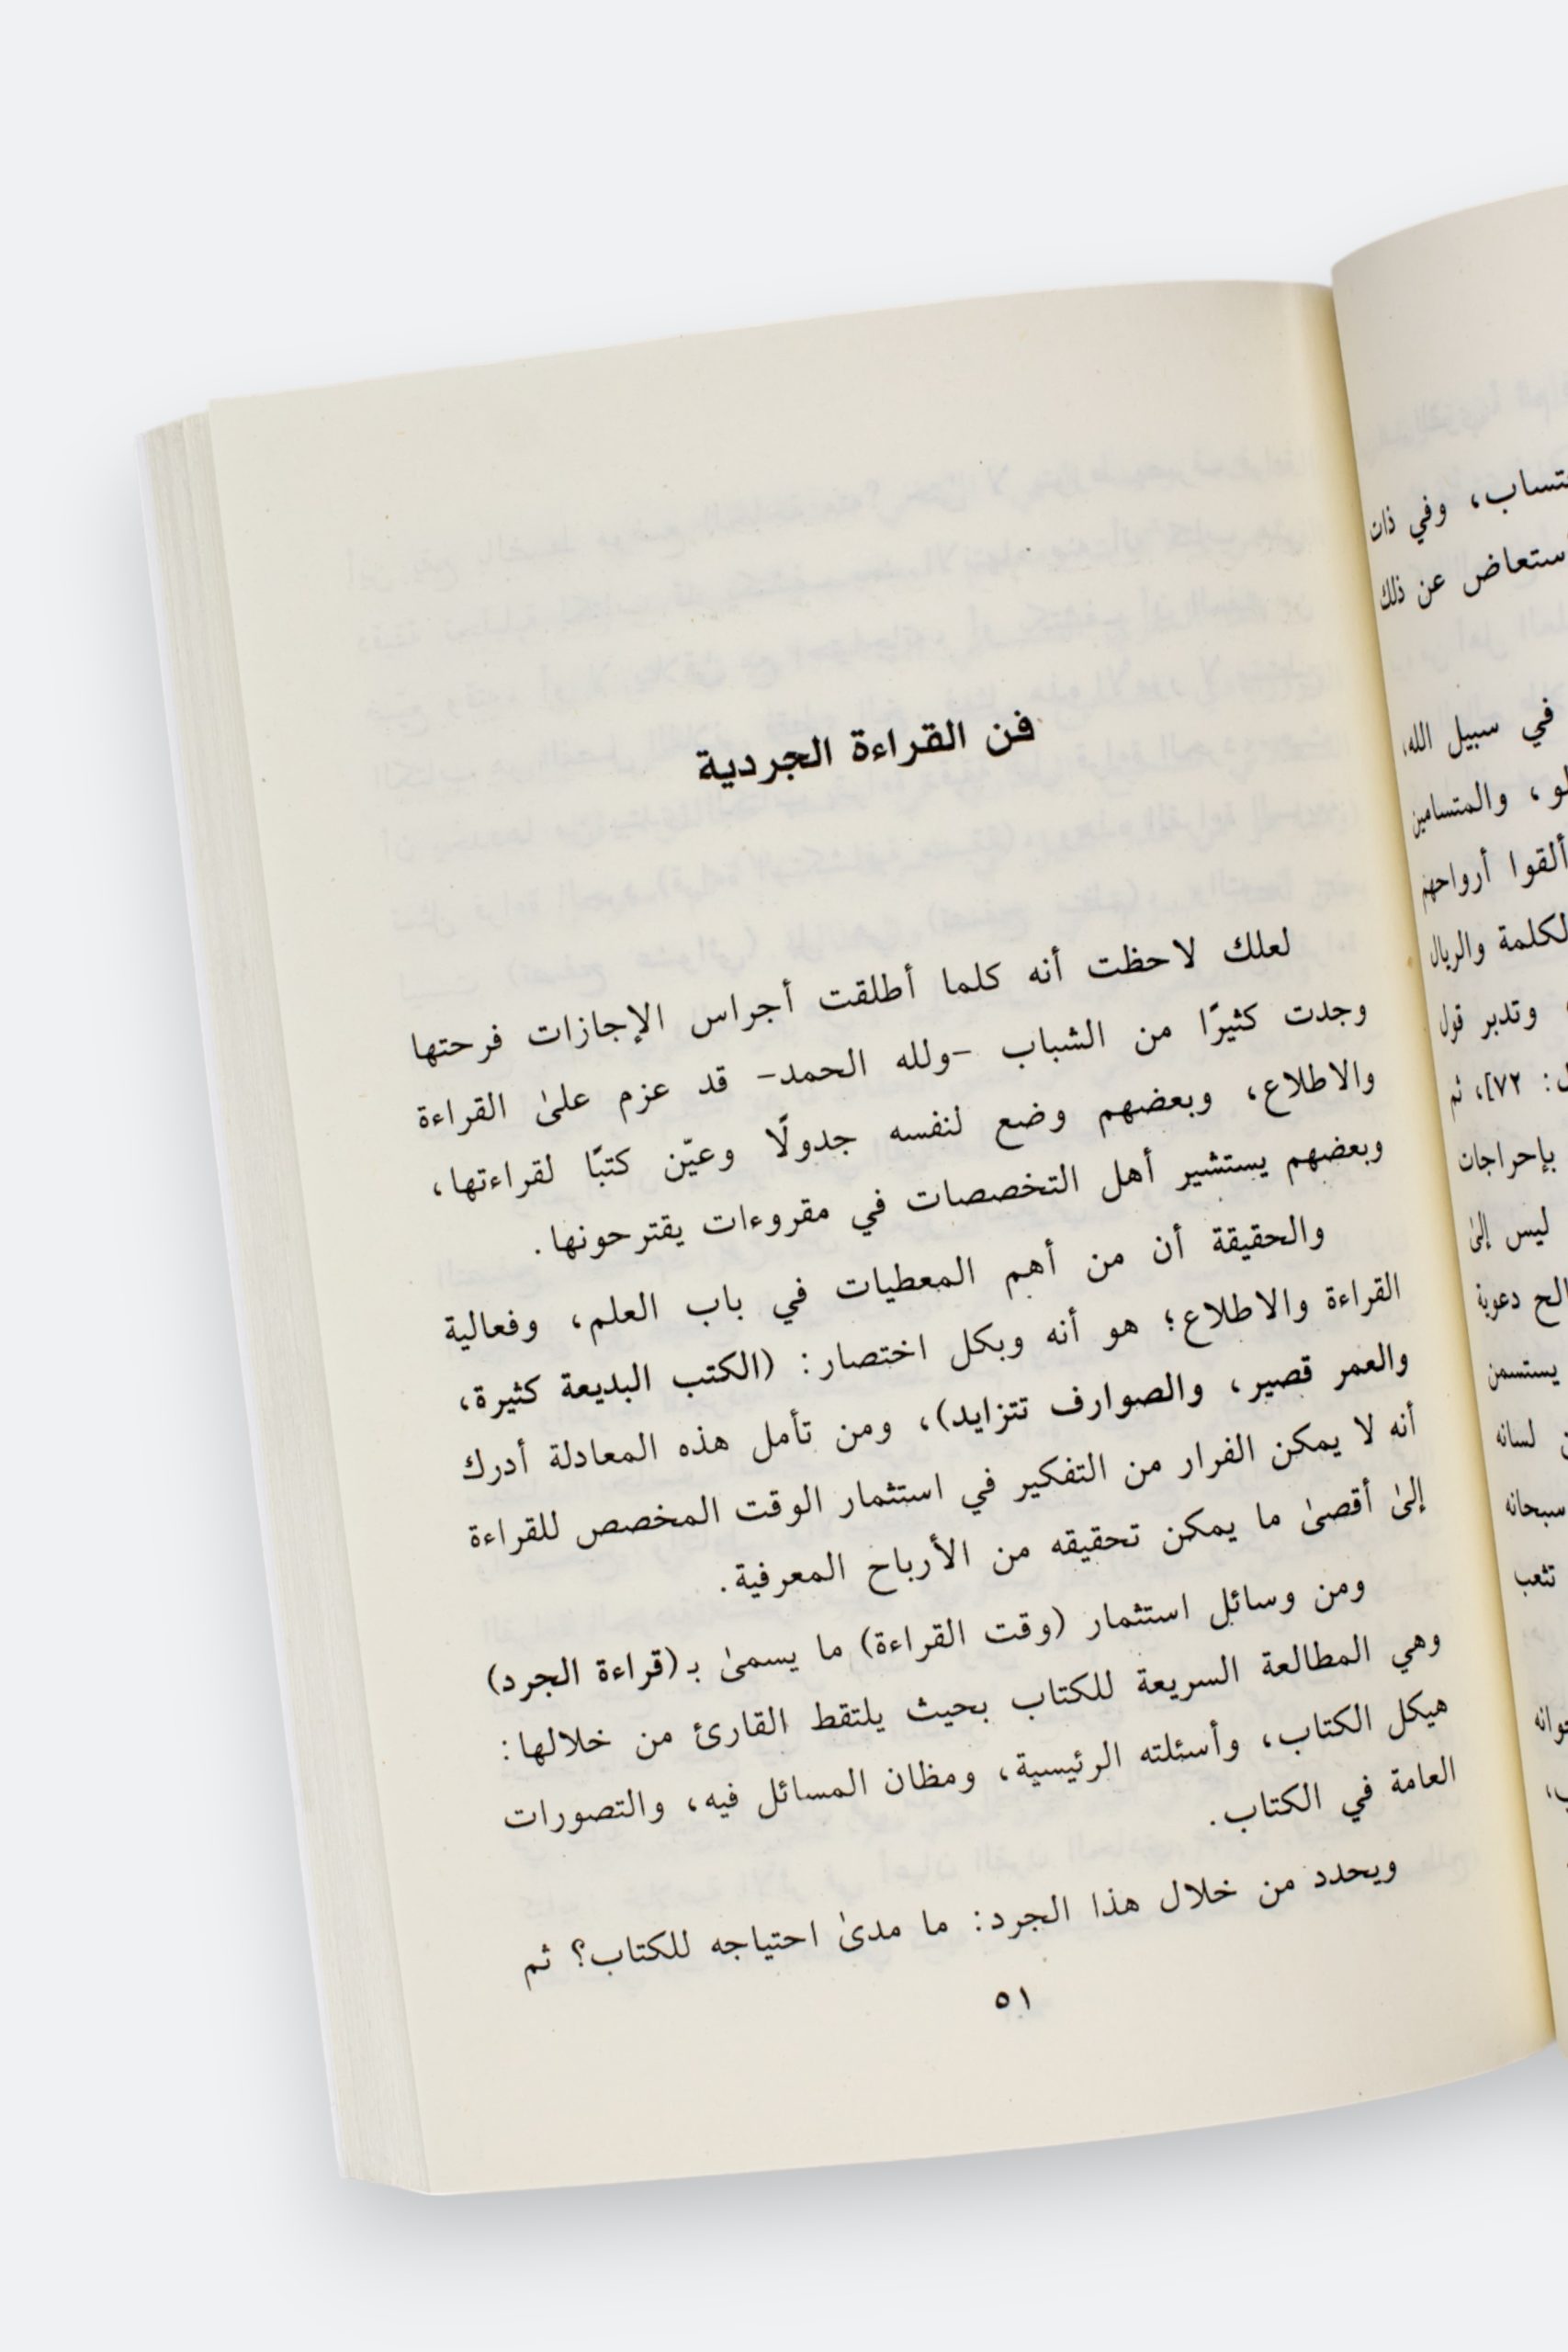 تساب، وفي ذات
ستعاض عن ذلك
في سبيل الله،
لو، والمتسامين
ألقوا أرواحهم
لكلمة والريال
وتدبر قول
: ٧٢]، ثم
بإحراجات
ليس إلىٰ
الح دعوية
يستسمن
لسانه
سبحانه
تثعب
فن القراءة الجردية
لعلك لاحظت أنه كلما أطلقت أجراس الإجازات فرحتها
وجدت كثيرًا من الشباب -ولله الحمد- قد عزم علىٰ القراءة
والاطلاع، وبعضهم وضع لنفسه جدولًا وعيّن كتبًا لقراءتها،
وبعضهم يستشير أهل التخصصات في مقروءات يقترحونها.
والحقيقة أن من أهم المعطيات في باب العلم، وفعالية
القراءة والاطلاع؛ هو أنه وبكل اختصار: (الكتب البديعة كثيرة،
والعمر قصير، والصوارف تتزايد)، ومن تأمل هذه المعادلة أدرك
أنه لا يمكن الفرار من التفكير في استثمار الوقت المخصص للقراءة
إلىٰ أقصىٰ ما يمكن تحقيقه من الأرباح المعرفية.
ومن وسائل استثمار (وقت القراءة) ما يسمىٰ بـ(قراءة الجرد)
وهي المطالعة السريعة للكتاب بحيث يلتقط القارئ من خلالها:
هيكل الكتاب، وأسئلته الرئيسية، ومظان المسائل فيه، والتصورات
العامة في الكتاب.
ويحدد من خلال هذا الجرد: ما مدىٰ احتياجه للكتاب؟ ثم
٥١